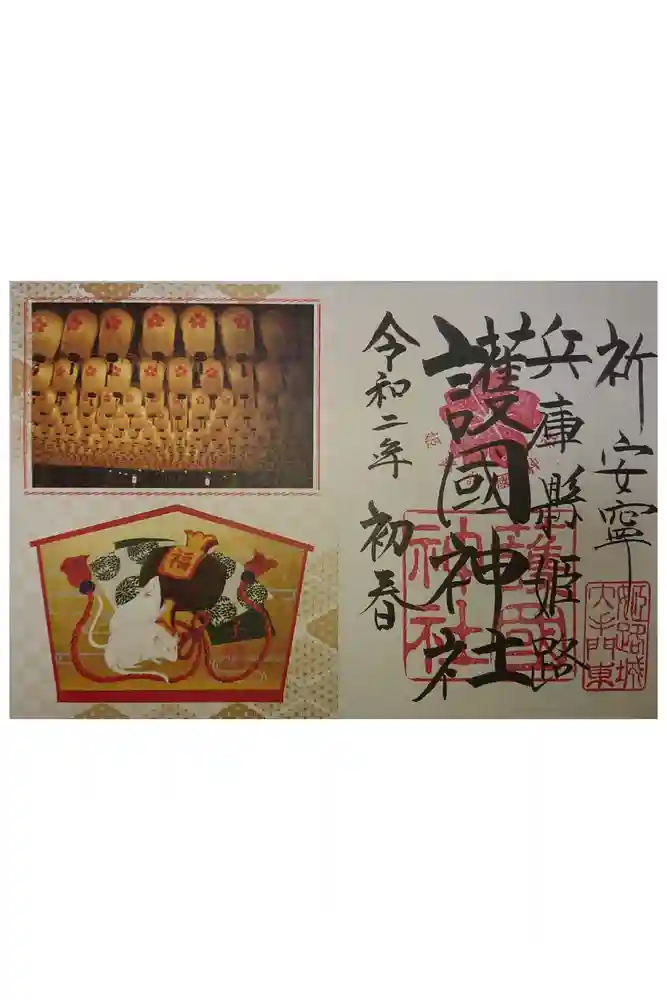 祈安寧
兵庫縣姫路
護國神社
令和二年 初春
姫路城
大手門東
護國
神社
福